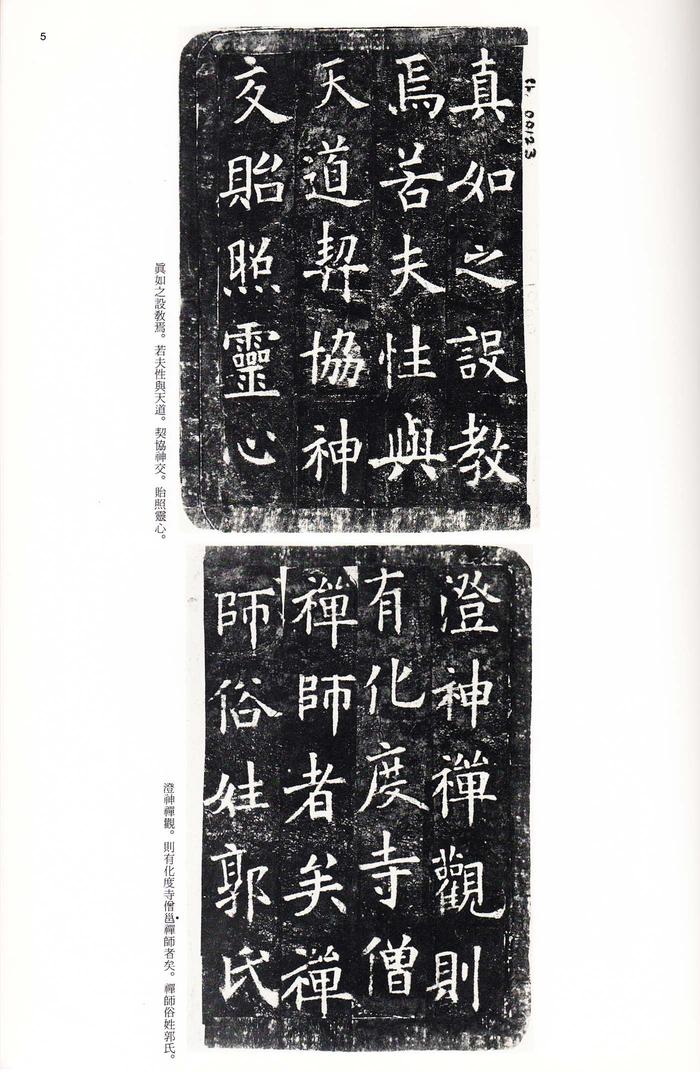 5
Ch. 00123
真如之設教
焉若夫性與
天道契協神
交貽照靈心
眞如之設敎焉。若夫性與天道。契協神交。貽照靈心。
澄神禪觀則
有化度寺僧
禪師者矣禪
師俗姓郭氏
澄神禪觀。則有化度寺僧邕禪師者矣。禪師俗姓郭氏。